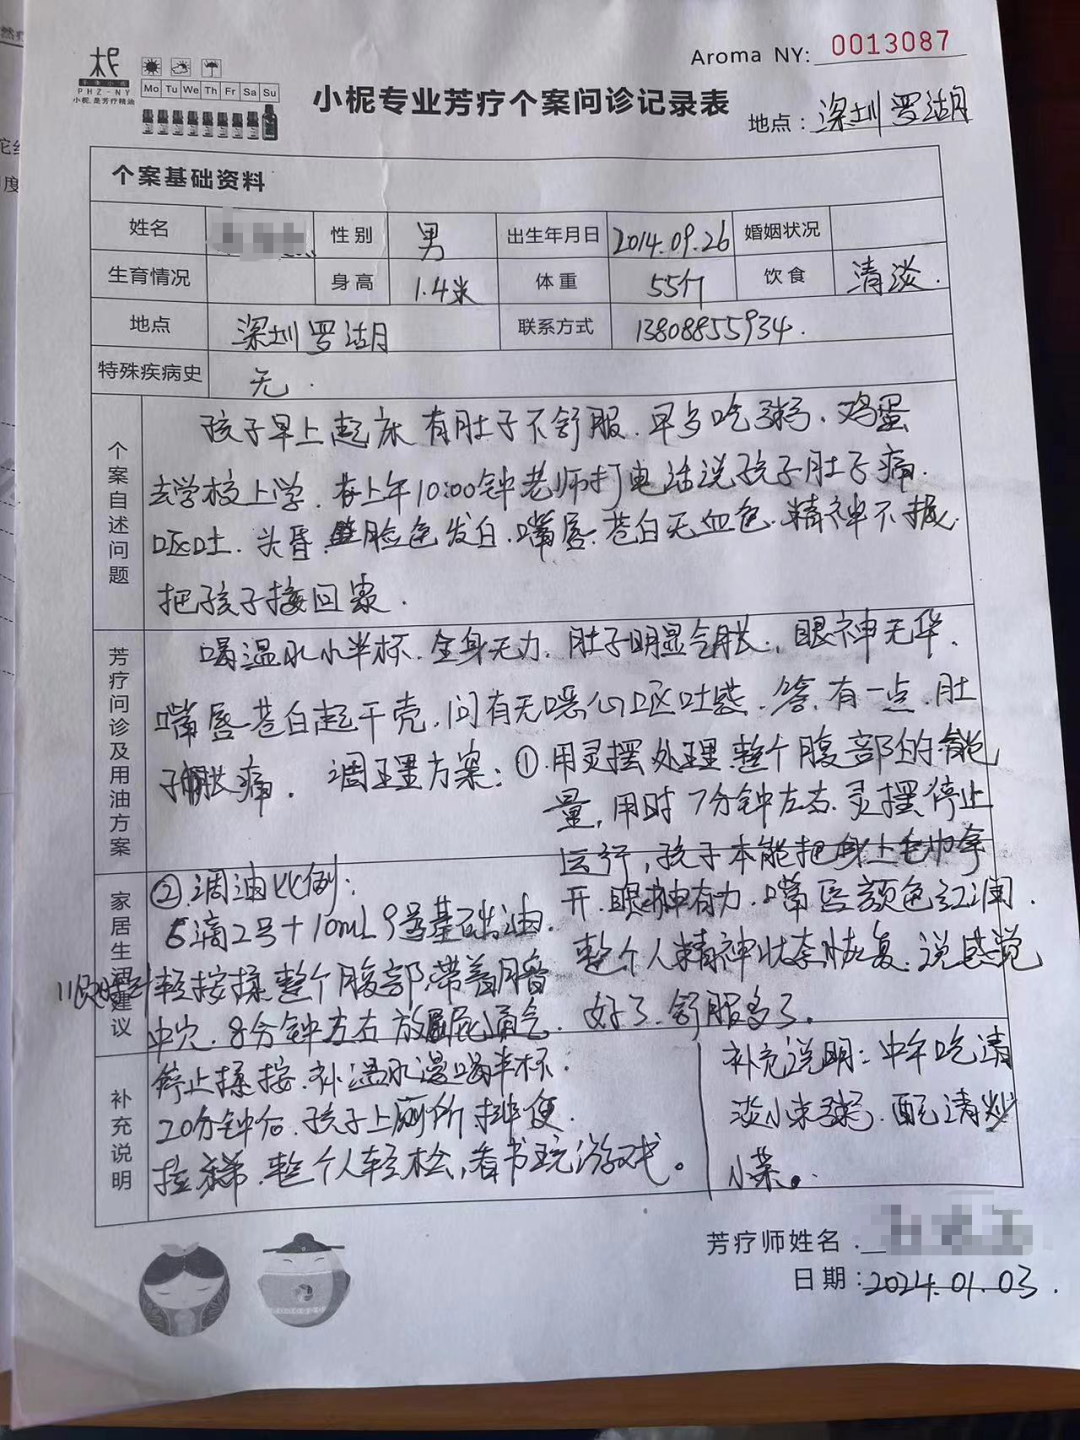 Aroma NY: 0013087
木尼
PHZ-NY
小柅,是芳疗精油
Mo Tu We Th Fr Sa Su
小柅专业芳疗个案问诊记录表
地点：深圳罗湖
个案基础资料
姓名 性别 男 出生年月日 2014.09.26 婚姻状况
生育情况 身高 1.4米 体重 55斤 饮食 清淡.
地点 深圳罗湖 联系方式 13808855934.
特殊疾病史 无.
个案自述问题
孩子早上起床有肚子不舒服.早乡吃粥、鸡蛋
去学校上学.在上午10:00钟老师打电话说孩子肚子痛.
呕吐.头昏.脸色发白.嘴唇.苍白无血色.精神不振.
把孩子接回家.
芳疗问诊及用油方案
喝温水小半杯.全身无力.肚子明显气胀.，眼神无华.
嘴唇苍白起干壳,问有无恶心呕吐感.答.有一点.肚
子胀痛. 调理方案:①.用灵摆处理.整个腹部的能
量,用时7分钟左右.灵摆停止
运行,孩子本能把身上毛巾拿
开.眼神有力.嘴唇颜色红润.
整个人精神状态恢复.说感觉
好了.舒服多了.
家居生活建议
②.调油比例:
6滴2号+10mL 9号基础油.
顺时针轻按揉整个腹部.带着肚脐
中穴.8分钟左右放屁通气.
停止揉按.补温水温喝半杯.
补充说明
20分钟后.孩子上厕所排便.
拉稀.整个人轻松,看书玩游戏。
补充说明:中午吃清
淡小米粥.配清炒
小菜。.
芳疗师姓名：
日期：2024.01.03.